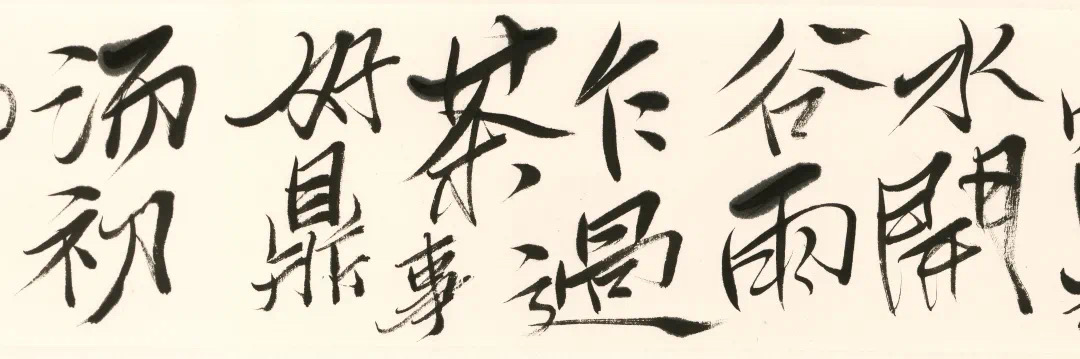 水開
谷雨
乍過
茶事
好鼎
湯初